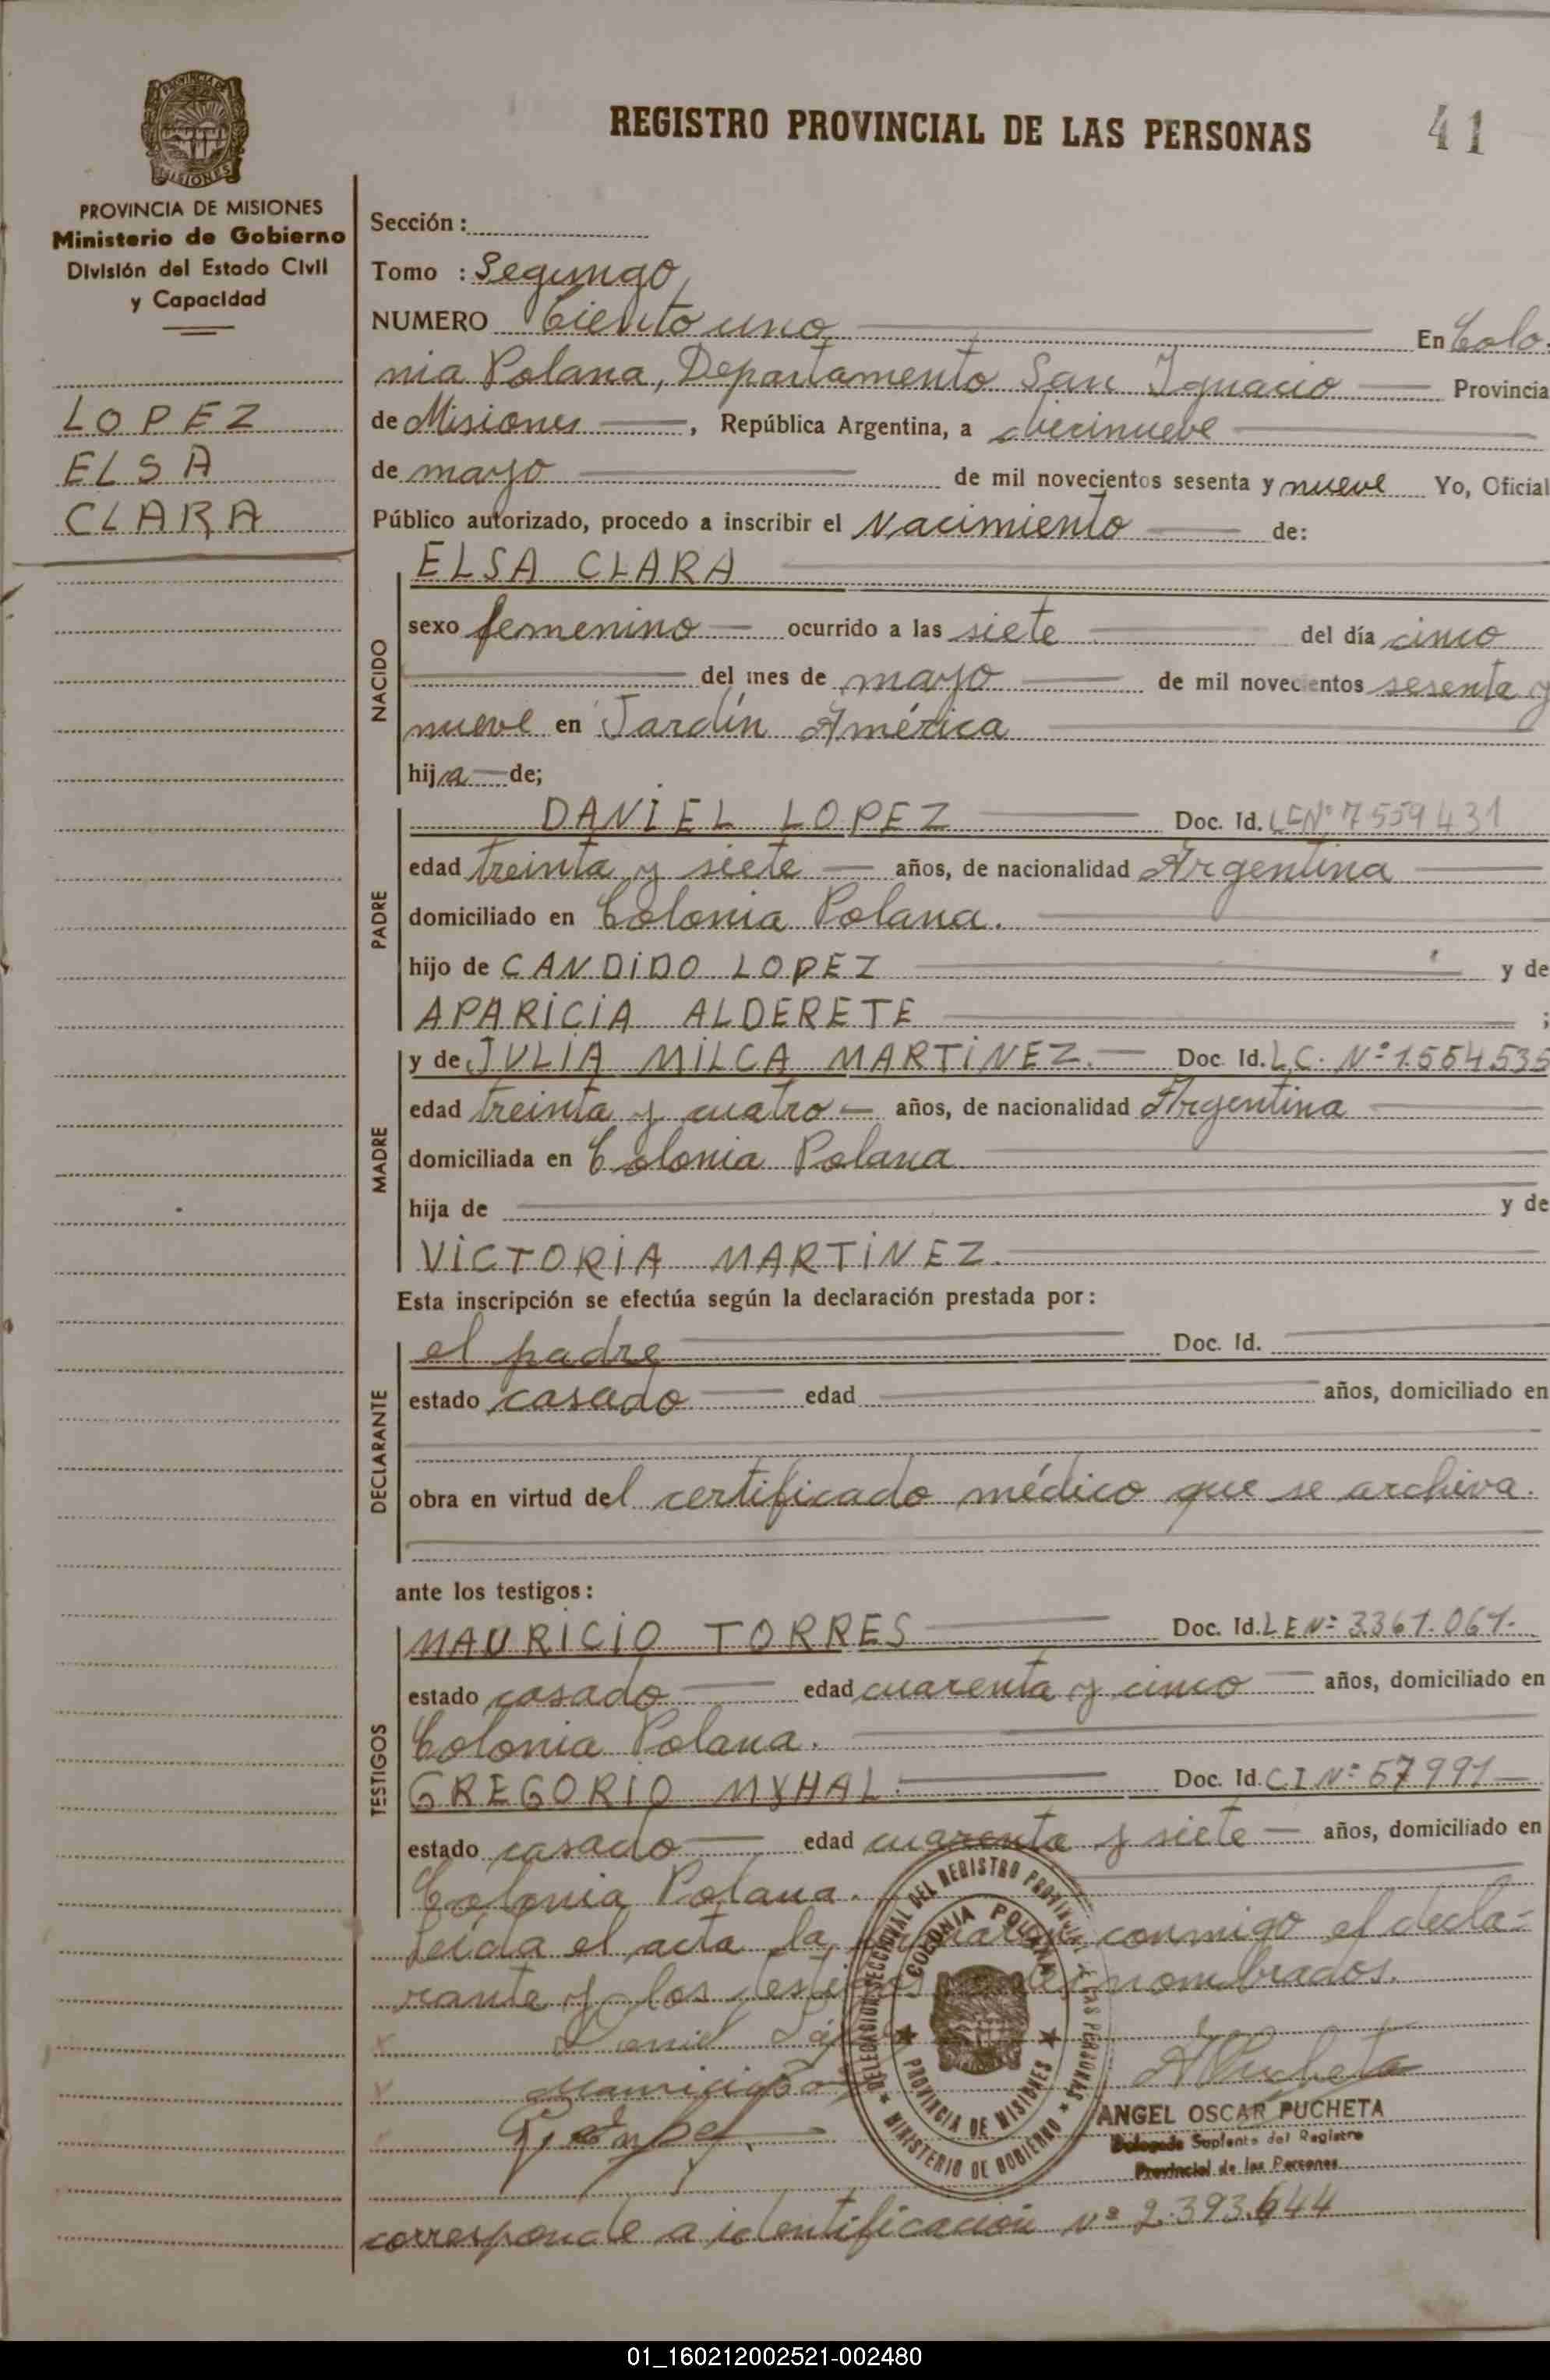 REGISTRO PROVINCIAL DE LAS PERSONAS
41
PROVINCIA DE MISIONES
Ministerio de Gobierno
División del Estado Civil
y Capacidad
LOPEZ
ELSA
CLARA
Sección :
Tomo : Segundo
NUMERO Ciento uno En Colo-
nia Polana, Departamento San Ignacio Provincia
de Misiones , República Argentina, a diecinueve
de mayo de mil novecientos sesenta y nueve Yo, Oficial
Público autorizado, procedo a inscribir el Nacimiento de:
NACIDO
ELSA CLARA
sexo femenino ocurrido a las siete del día cinco
del mes de mayo de mil novecientos sesenta y
nueve en Jardín América
hija de;
PADRE
DANIEL LOPEZ Doc. Id. LE Nº 7559431
edad treinta y siete años, de nacionalidad Argentina
domiciliado en Colonia Polana.
hijo de CANDIDO LOPEZ y de
APARICIA ALDERETE ;
MADRE
y de JULIA MILCA MARTINEZ. Doc. Id. L.C. Nº 1.554535
edad treinta y cuatro años, de nacionalidad Argentina
domiciliada en Colonia Polana
hija de y de
VICTORIA MARTINEZ.
Esta inscripción se efectúa según la declaración prestada por:
DECLARANTE
el padre Doc. Id.
estado casado edad años, domiciliado en
obra en virtud del certificado médico que se archiva.
ante los testigos:
TESTIGOS
MAURICIO TORRES Doc. Id. LE Nº 3.361.061.
estado casado edad cuarenta y cinco años, domiciliado en
Colonia Polana.
GREGORIO MYHAL. Doc. Id. C I Nº 57991
estado casado edad cuarenta y siete años, domiciliado en
Colonia Polana.
Leída el acta la conmigo el decla-
rante y los nombrados.
Daniel
DELEGACION SECCIONAL DEL REGISTRO PROVINCIAL DE LAS PERSONAS
COLONIA POLANA
PROVINCIA DE MISIONES
MINISTERIO DE GOBIERNO
APucheta
ANGEL OSCAR PUCHETA
Delegado Suplente del Registro
Provincial de las Personas
corresponde a identificación nº 2.393.644
01_160212002521-002480